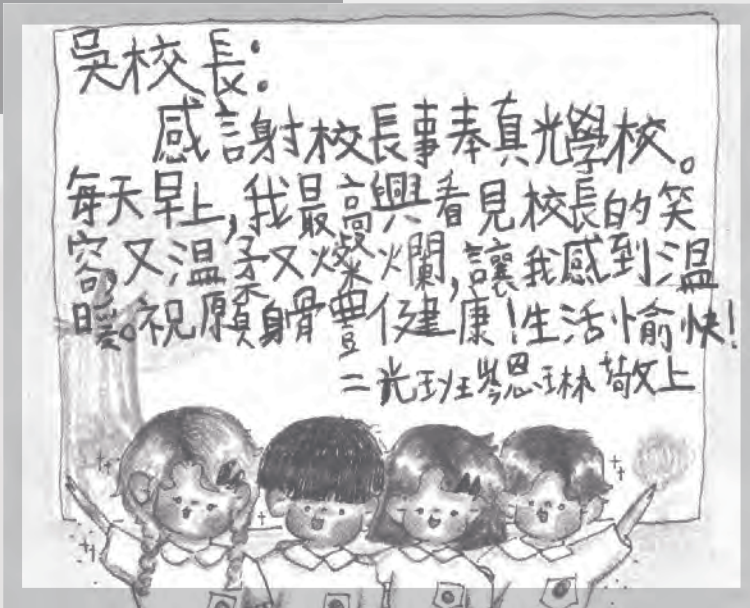 吳校長:
感謝校長事奉真光學校。
每天早上,我最高興看見校長的笑
容,又溫柔又燦爛,讓我感到溫
暖。祝願身體健康!生活愉快!
二光班岑恩琳敬上